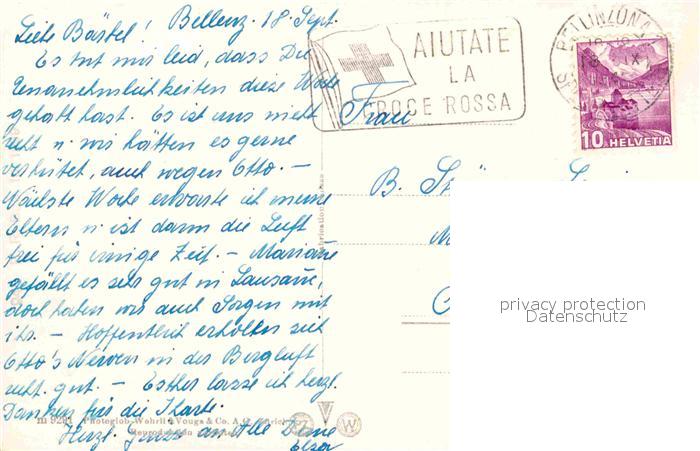 Bellenz. 18. Sept.
Liebe Bärbel!
Es tut mir leid, dass Du
Unannehmlichkeiten diese Woche
gehabt hast. Es ist uns nicht
recht u. wir hätten es gerne
verhütet, auch wegen Otto. —
Nächste Woche erwarte ich meine
Eltern u. ist dann die Luft
frei für einige Zeit. — Marianne
gefällt es sehr gut in Lausanne,
doch haben wir auch Sorgen mit
ihr. — Hoffentlich erholten sich
Otto's Nerven in der Bergluft
recht gut. — Esther lasse ich herzl.
Danken für die Karte.
Herzl. Gruss an Alle Deine
Elsa
AIUTATE
LA
CROCE ROSSA
BELLINZONA
10 HELVETIA
Frau
B.
privacy protection
Datenschutz
Photoglob-Wehrli & Vouga & Co. A.G.